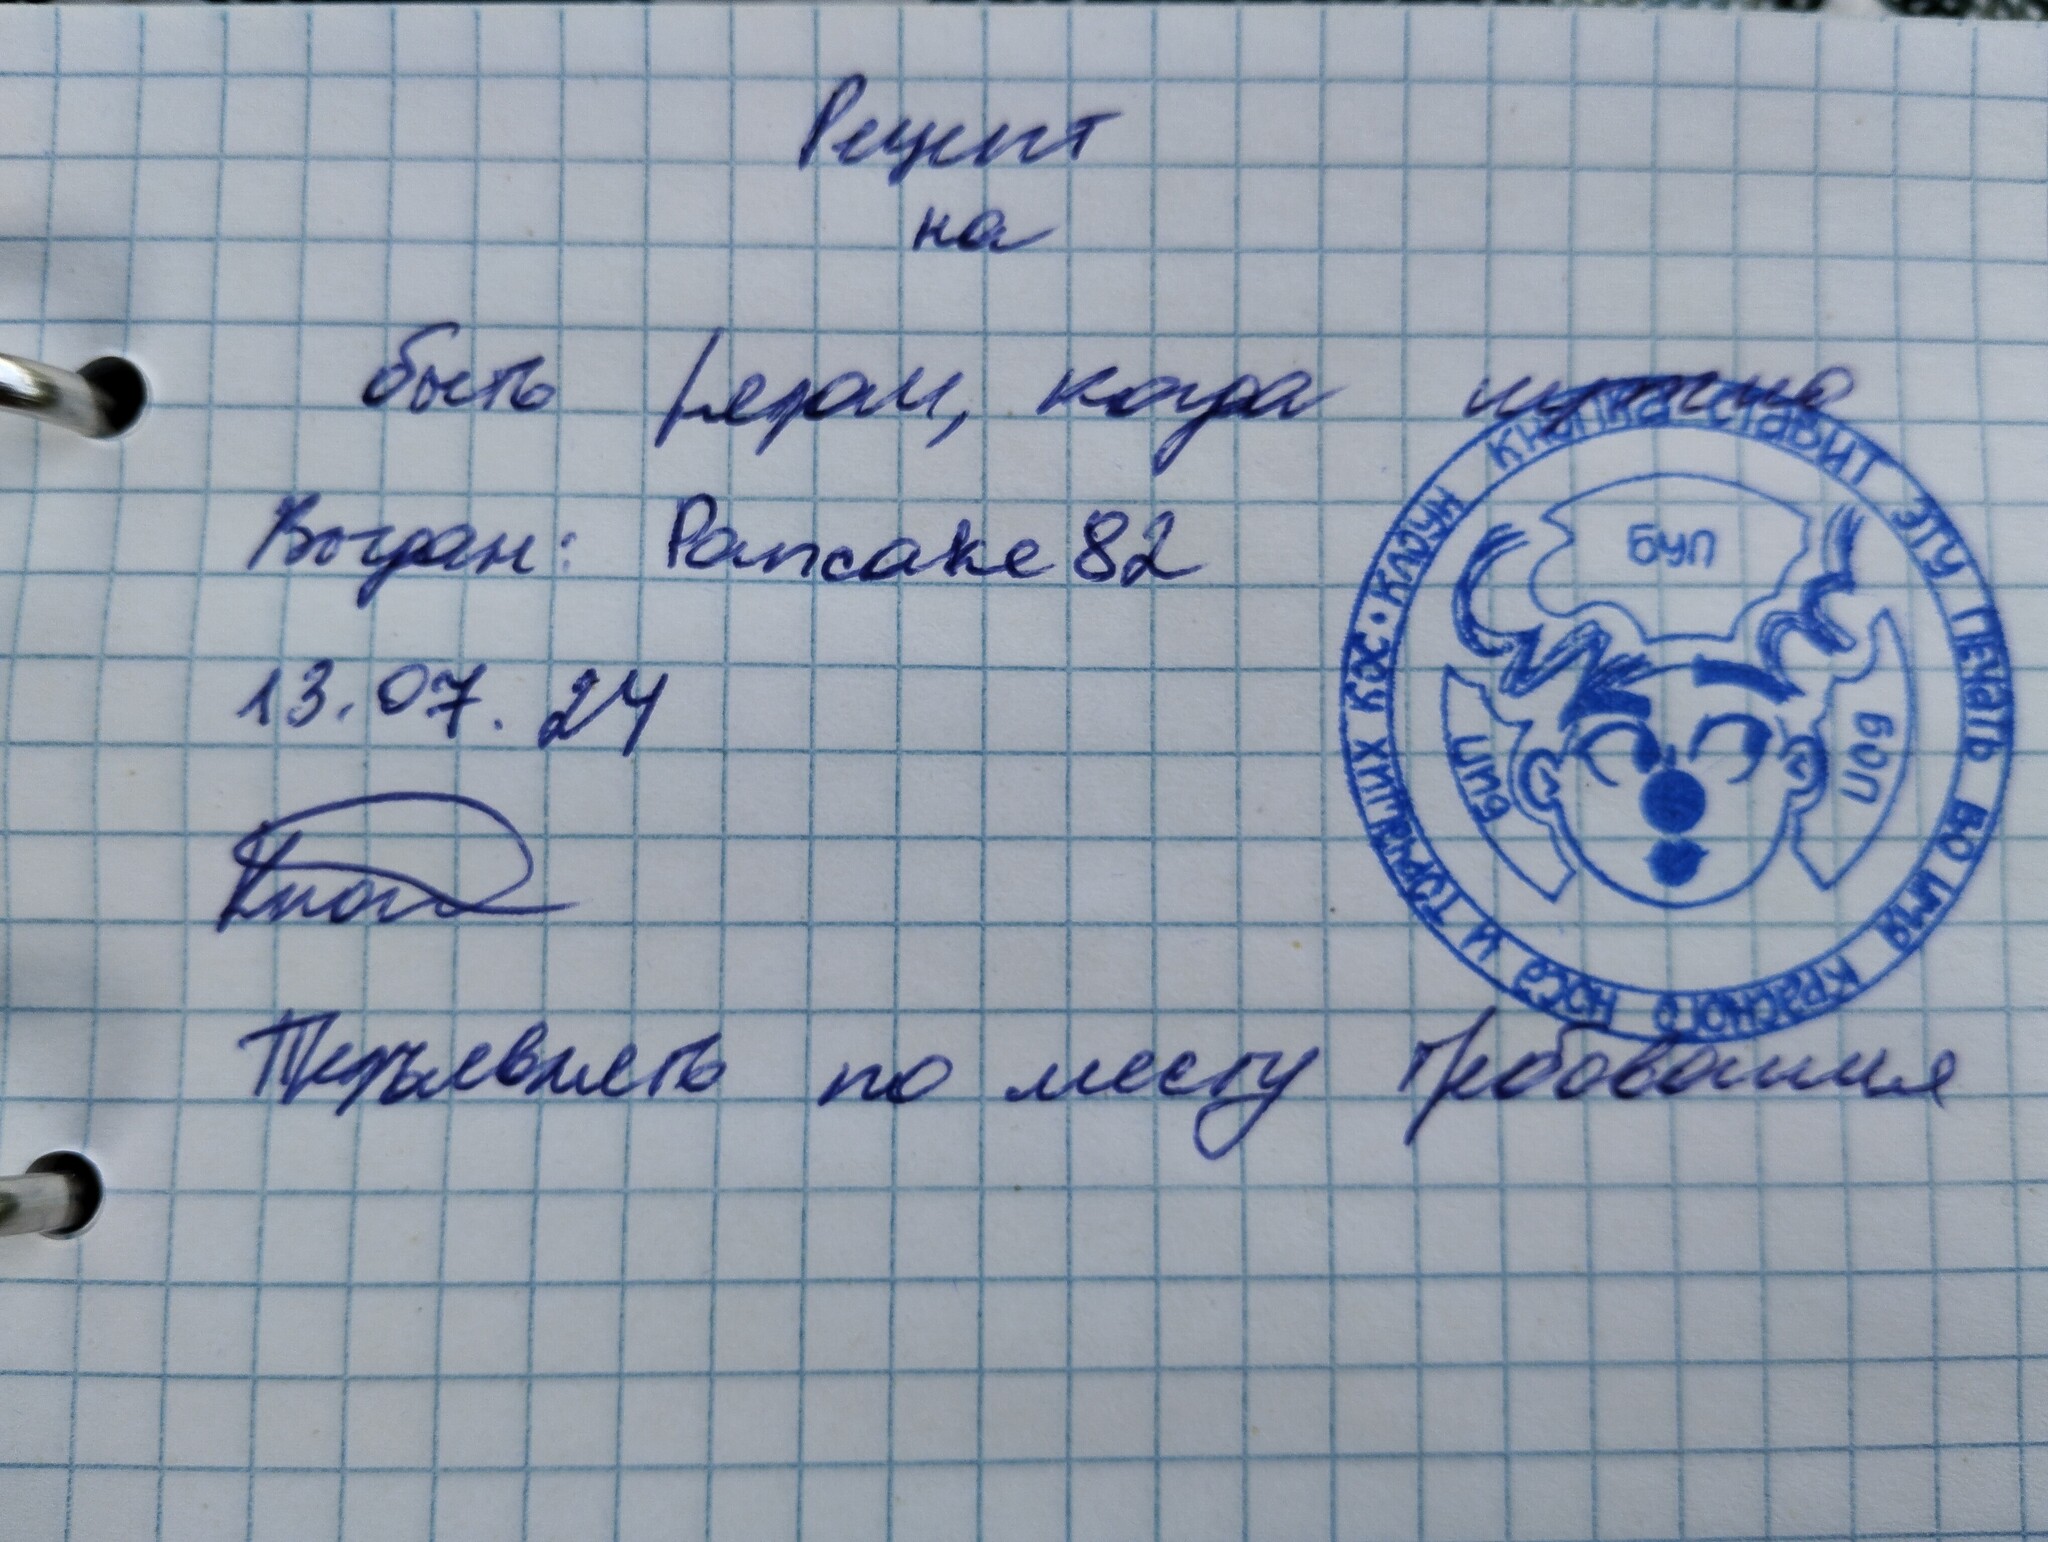 Рецепт
на
быть редом, когда нужно
Выдан: Pancake82
13.07.24
Предъявлять по месту требования
КЛОУН КНОПКА СТАВИТ ЭТУ ПЕЧАТЬ ВО ИМЯ КРАСНОГО НОСА И ТОРЧАЩИХ КОС •
БУП
БИП
БОП